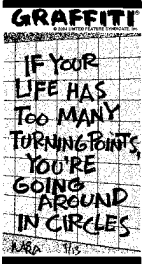 GRAFFITI®
© 2004 UNITED FEATURE SYNDICATE, INC.
IF YOUR
LIFE HAS
TOO MANY
TURNING POINTS,
YOU'RE
GOING
AROUND
IN CIRCLES